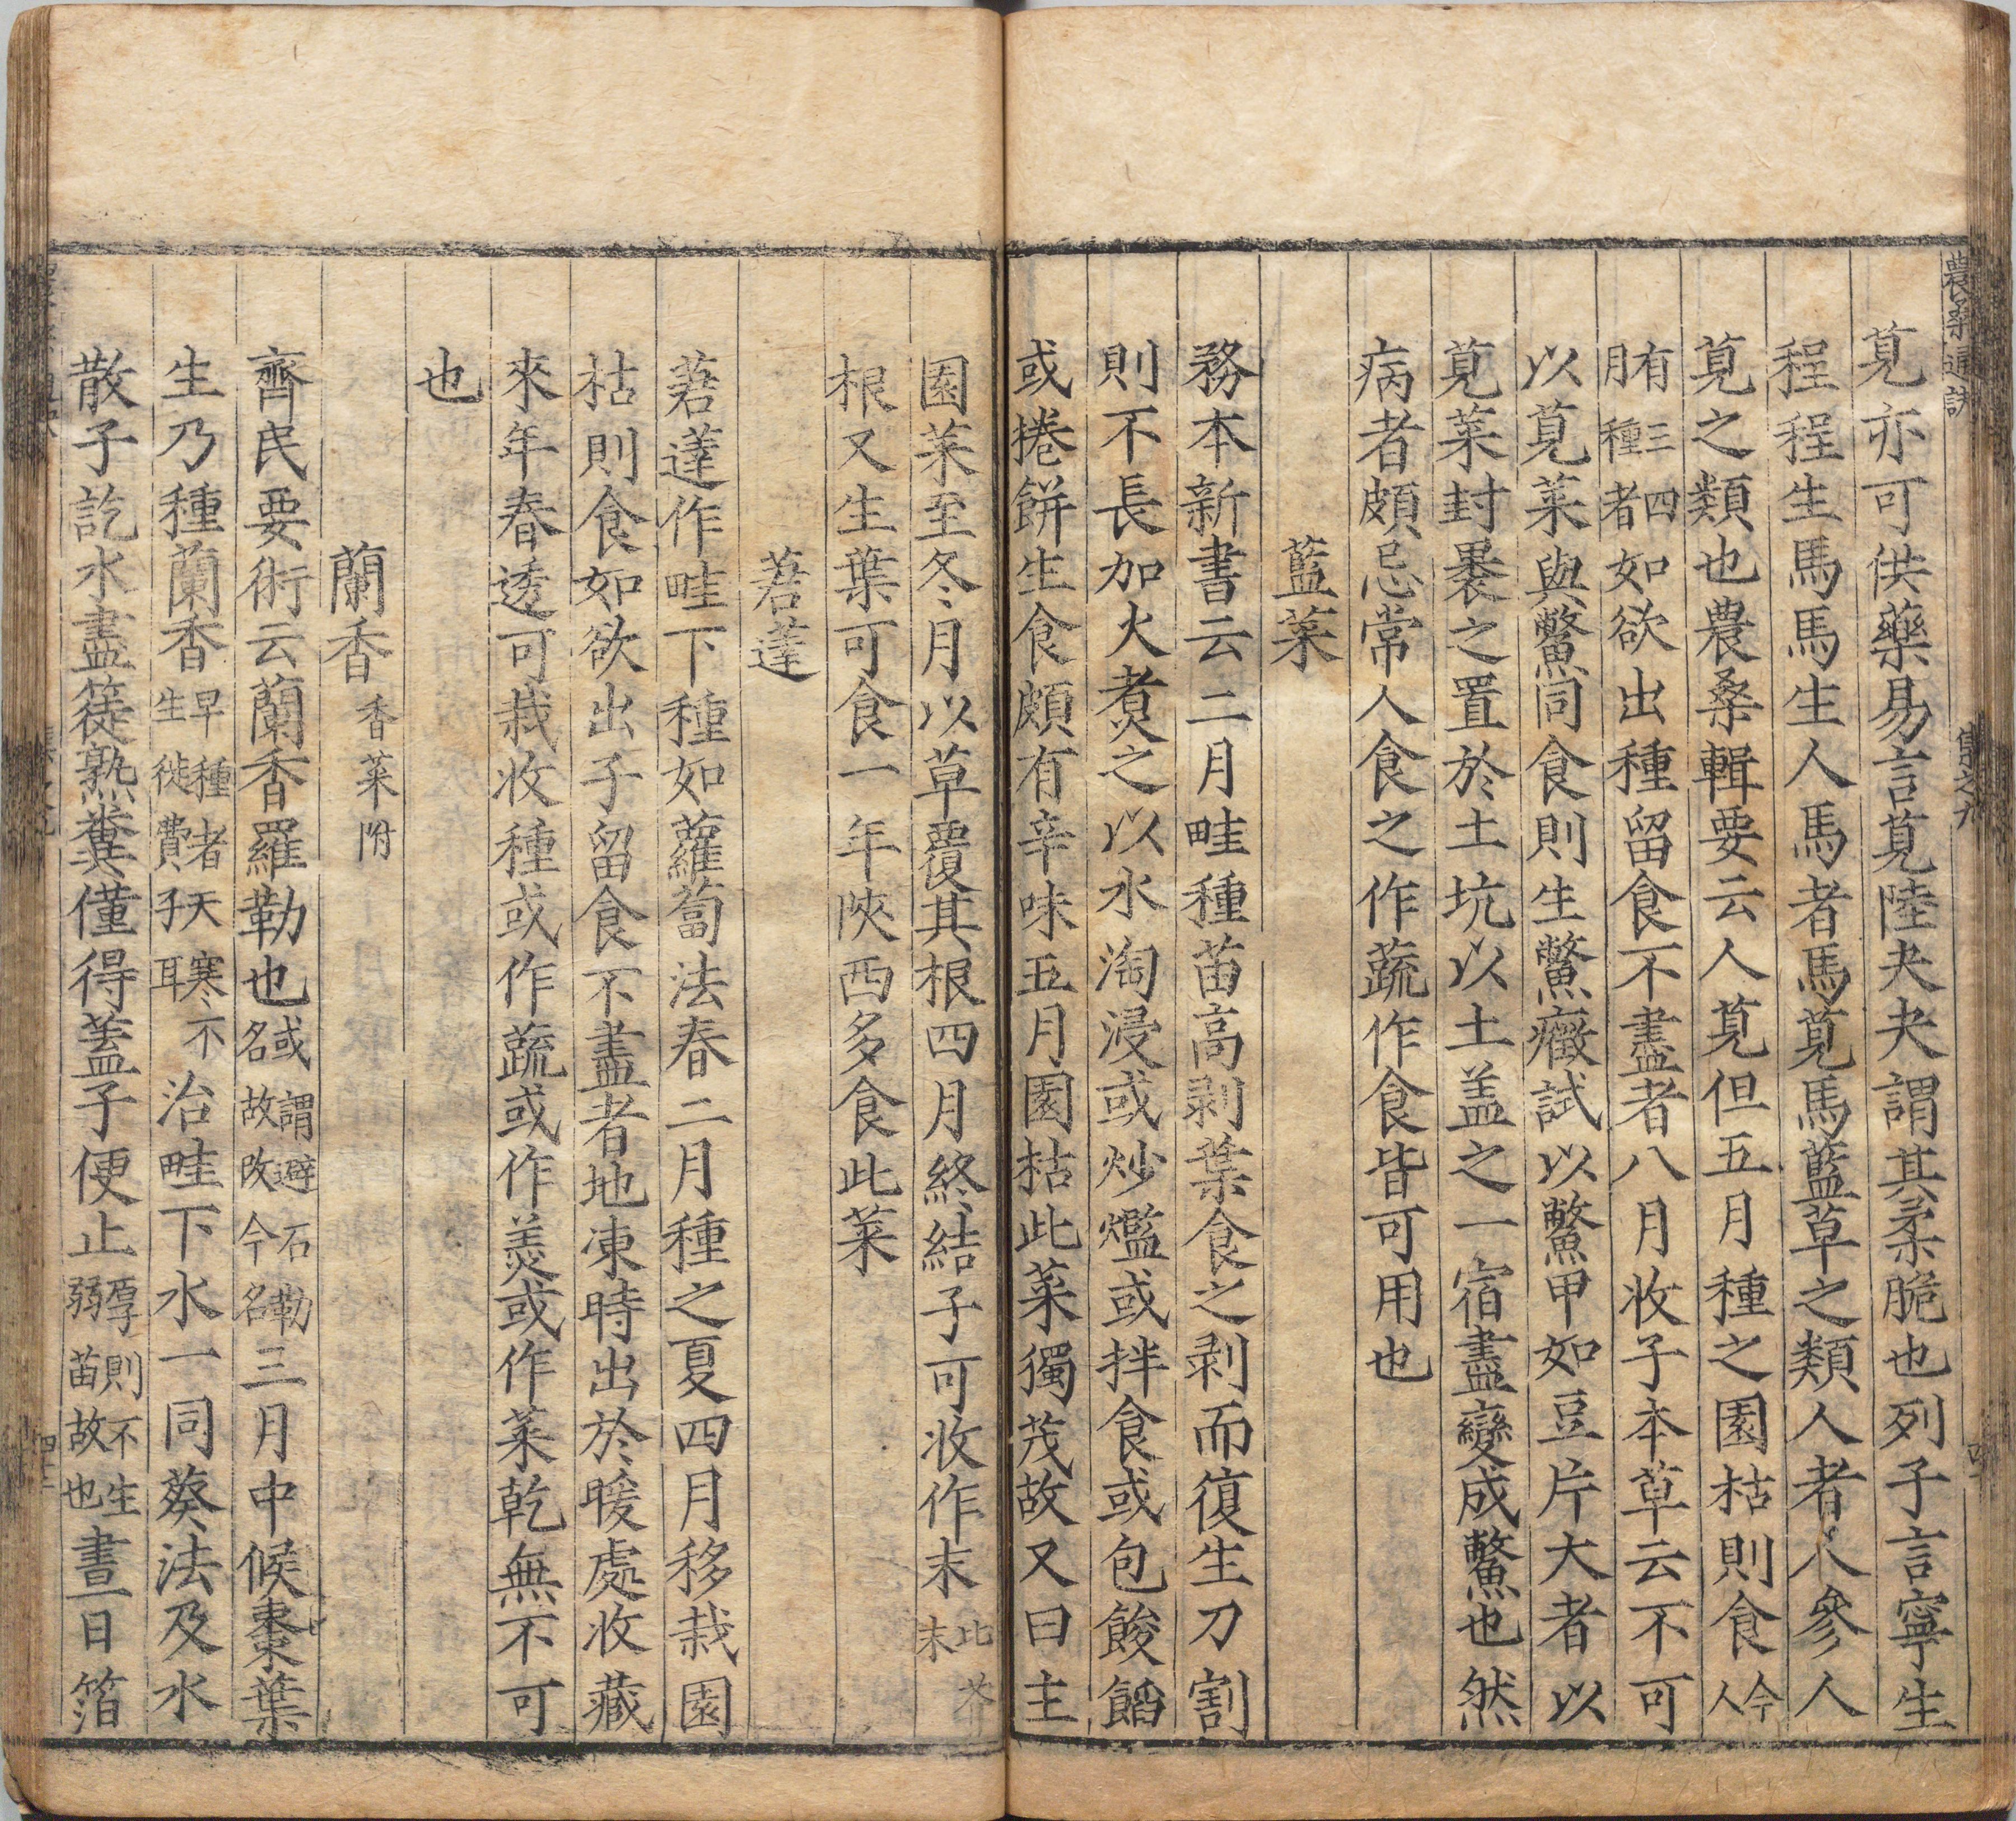 農桑通訣　集之九　四一
莧亦可供藥易言莧陸夬夬謂其柔脆也列子言寧生
程程生馬馬生人馬者馬莧馬藍草之類人者人參人
莧之類也農桑輯要云人莧但五月種之園枯則食今人
有三四月種者如欲出種留食不盡者八月收子本草云不可
以莧菜與鱉同食則生鱉癥試以鱉甲如豆片大者以
莧菜封裹之置於土坑以土盖之一宿盡變成鱉也然
病者頗忌常人食之作蔬作食皆可用也
藍菜
務本新書云二月畦種苗高剥葉食之剥而復生刀割
則不長加火煮之以水淘浸或炒爁或拌食或包餕餡
或捲餅生食頗有辛味五月園枯此菜獨茂故又曰主
園菜至冬月以草覆其根四月終結子可收作末比芥末
根又生葉可食一年陜西多食此菜
莙薘
莙薘作畦下種如蘿蔔法春二月種之夏四月移栽園
枯則食如欲出子留食不盡者地凍時出於暖處收藏
來年春透可栽收種或作蔬或作羹或作菜乾無不可
也
蘭香香菜附
齊民要術云蘭香羅勒也或謂避石勒名故改今名三月中候棗葉
生乃種蘭香早種者天寒不生徙費子耳治畦下水一同葵法及水
散子訖水盡簁熟糞僅得蓋子便止厚則不生弱苗故也晝日箔